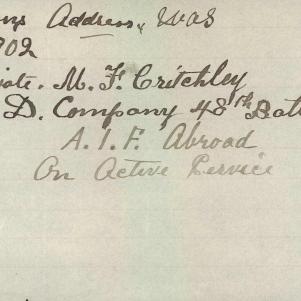 Address, was
902
M. F. Critchley
D. Company 48th Batt
A. I. F. Abroad
On Active Service